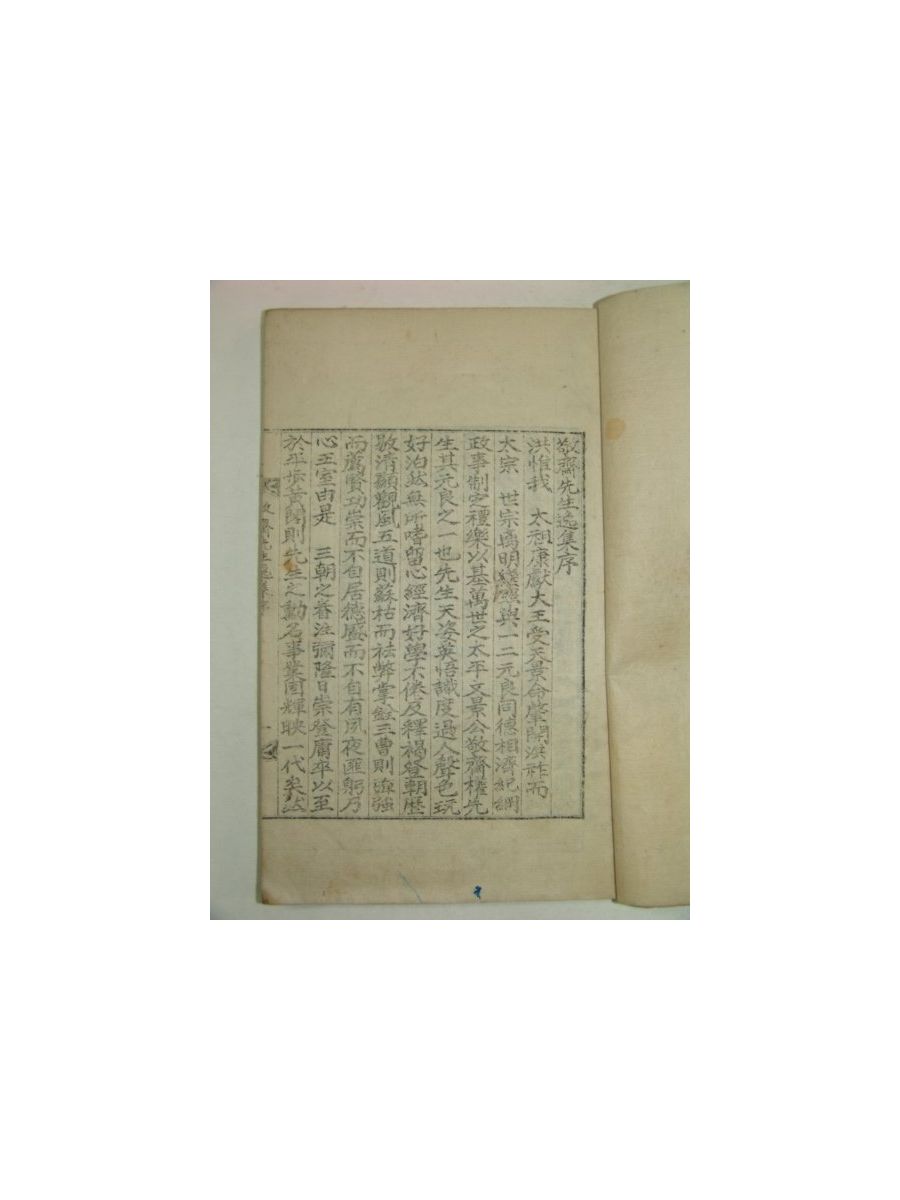 敬齋先生逸集序
洪惟我 太祖康獻大王受天景命肇開洪祚而
太宗 世宗為明繼照與一二元良同德相濟紀綱
政事制定禮樂以基萬世之太平文景公敬齋權先
生其元良之一也先生天姿英悟識度過人聲色玩
好泊然無所嗜留心經濟好學不倦及釋褐登朝歷
敭清顯觀風五道則蘇枯而祛弊掌銓三曹則
而薦賢功崇而不自居德盛而不自有夙夜匪躬乃
心王室由是 三朝之眷注彌隆日崇登庸卒以至
於平步黃閣則先生之勳名事業固輝映一代矣